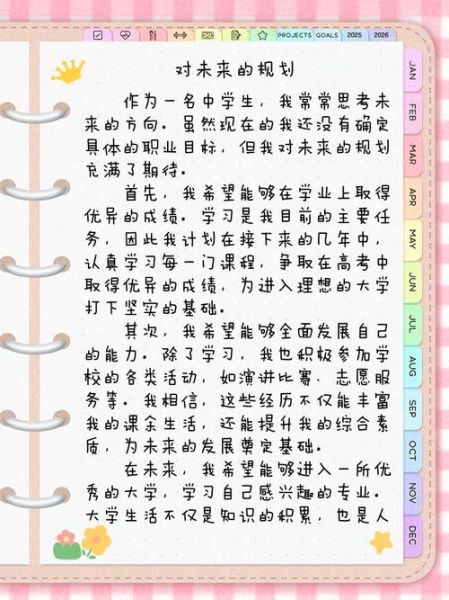 PROJECTS GOALS 2025 2026
对未来的规划
作为一名中学生，我常常思考未
来的方向。虽然现在的我还没有确定
具体的职业目标，但我对未来的规划
充满了期待。
首先，我希望能够在学业上取得
优异的成绩。学习是我目前的主要任
务，因此我计划在接下来的几年中，
认真学习每一门课程，争取在高考中
取得优异的成绩，为进入理想的大学
打下坚实的基础。
其次，我希望能够全面发展自己
的能力。除了学习，我也积极参加学
校的各类活动，如演讲比赛、志愿服
务等。我相信，这些经历不仅能丰富
我的课余生活，还能提升我的综合素
质，为未来的发展奠定基础。
在未来，我希望能够进入一所优
秀的大学，学习自己感兴趣的专业。
大学生活不仅是知识的积累，也是人
JAN
FEB
MAR
APR
MAY
JUN
JUL
AUG
SEP
OCT
NOV
DEC